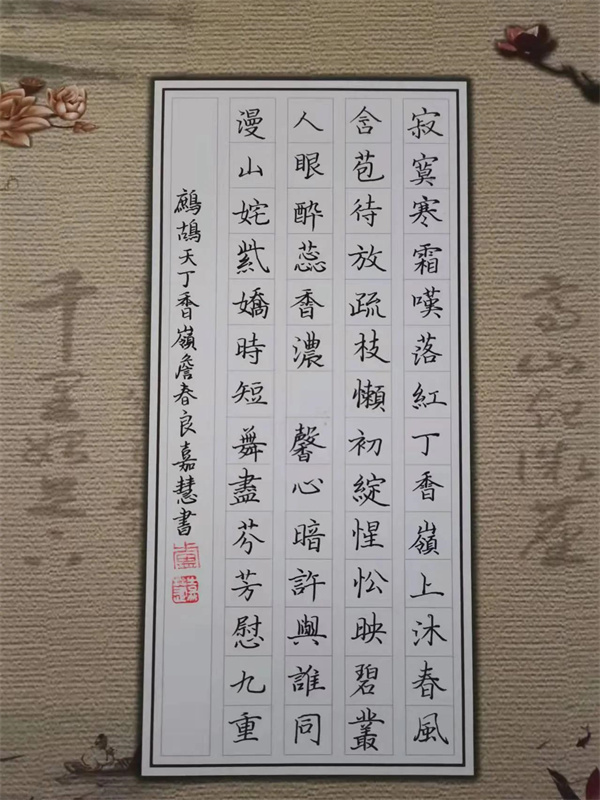 寂寞寒霜嘆落紅丁香嶺上沐春風
含苞待放疏枝懶初綻惺忪映碧叢
人眼醉蕊香濃 馨心暗許與誰同
漫山姹紫嬌時短舞盡芬芳慰九重
鷓鴣天丁香嶺詹春良嘉慧書